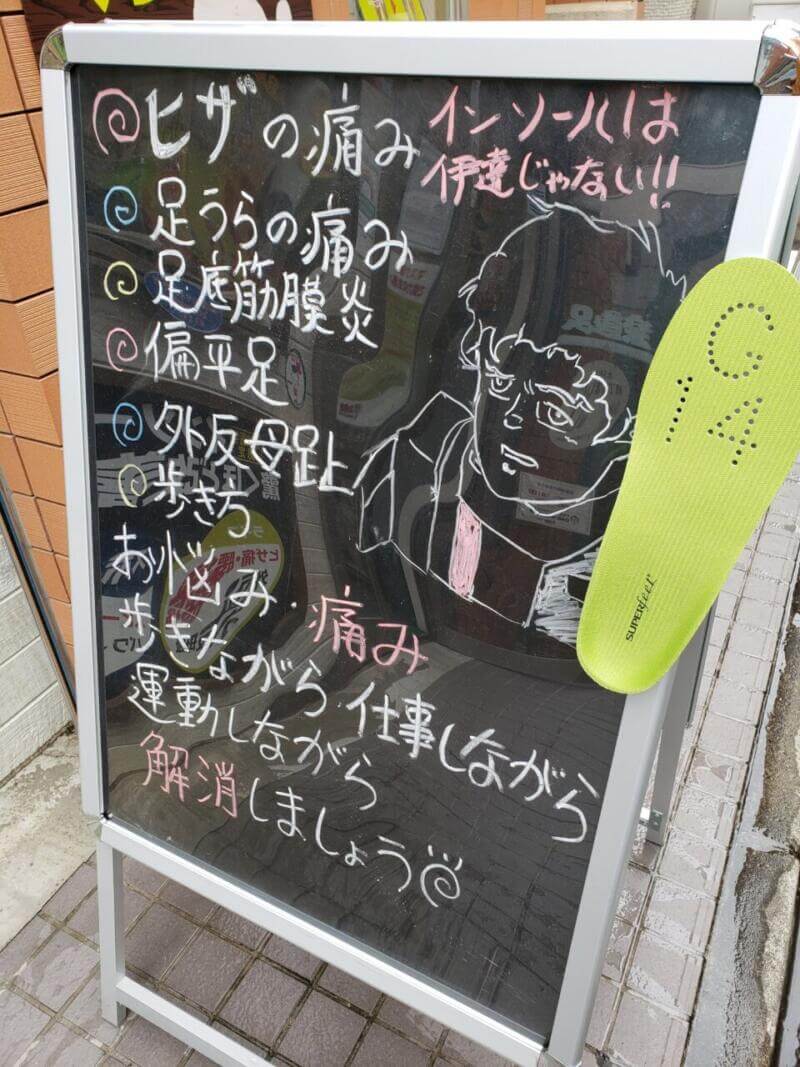 ヒザの痛み
インソールは
伊達じゃない!!
足うらの痛み
足底筋膜炎
偏平足
外反母趾
歩きう
お悩み・痛み
歩きながら・仕事しながら
運動しながら
解消しましょう
G
14
SUPERfeet